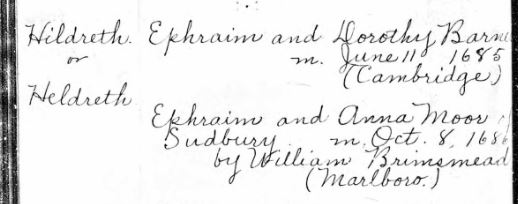 Hildreth. Ephraim and Dorothy Barn
or m. June 11 1685
(Cambridge)
Heldreth
Ephraim and Anna Moor
Sudbury m. Oct. 8, 168
by William Brimsmead
(Marlboro.)